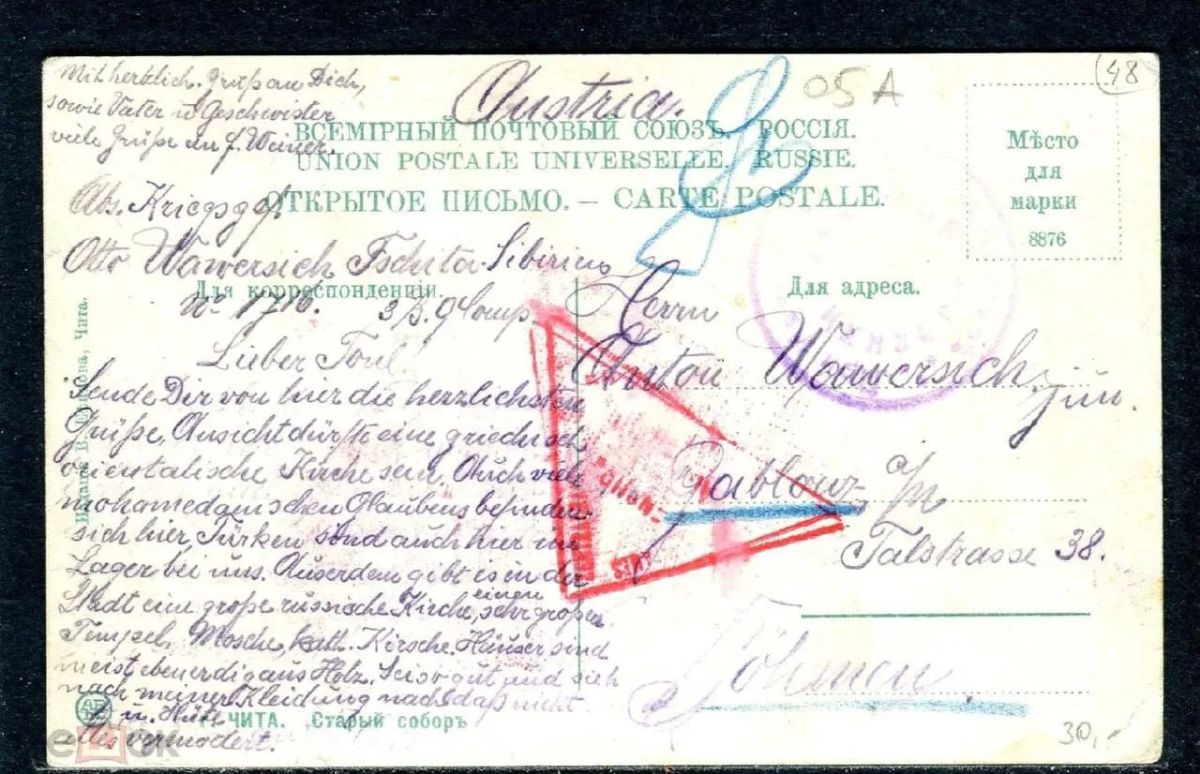 Mit herzlich. Gruß an Dich,
sowie Vater u Geschwister
viele Grüße an J. Weiner.
Austria.
05A
48
ВСЕМІРНЫЙ ПОЧТОВЫЙ СОЮЗЪ. РОССІЯ.
UNION POSTALE UNIVERSELLE. RUSSIE.
ОТКРЫТОЕ ПИСЬМО. — CARTE POSTALE.
Мѣсто
для
марки
8876
Abs. Kriegsgef.
Otto Wawersich Tschita Sibirien
Для корреспонденціи.
No 1716. 3/B. 9 Comp.
Для адреса.
Lieber Toni!
Sende Dir von hier die herzlichsten
Grüße. Ansicht dürfte eine griechisch
orientalische Kirche sein. Auch viele
mohamedanischen Glaubens befinden
sich hier Türken sind auch hier im
Lager bei uns. Auserdem gibt es in der
Stadt eine große russische Kirche, einen sehr großen
Tempel, Mosche, kath. Kirche. Häuser sind
meist ebenerdig aus Holz. Sei so gut und sieh
nach meiner Kleidung nach daß nicht
alles vermodert.
Herrn
Anton Wawersich
jun.
Gablonz a/N
Talstrasse 38.
Böhmen
Чита.
Г. ЧИТА. Старый соборъ
30,-